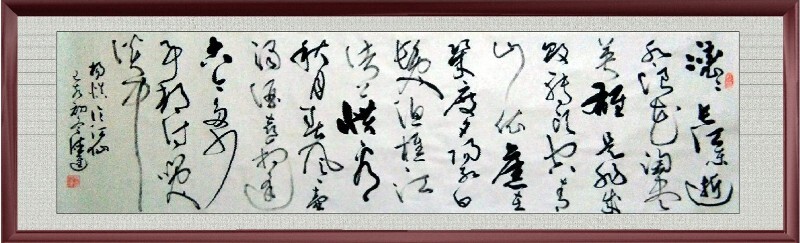 滚滚长江东逝
水浪花淘尽
英雄是非成
败转头空青
山依旧在
几度夕阳红白
发渔樵江
渚上惯看
秋月春风一壶
浊酒喜相逢
古今多少
事都付笑
谈中
杨慎临江仙
己亥初冬